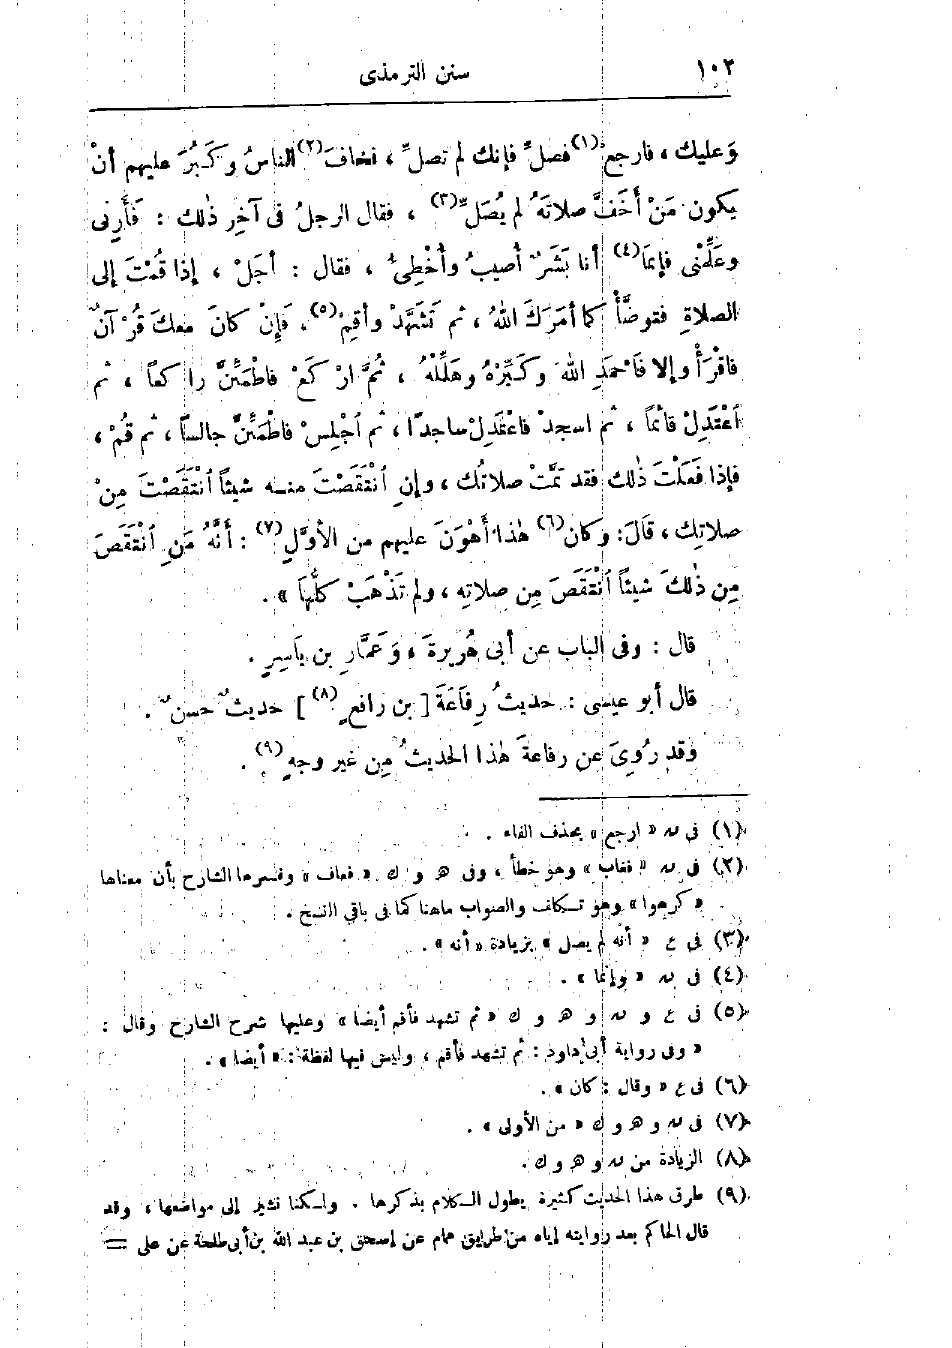 ١٠٢ سنن الترمذى
وَعليك ، فارجع(١) فصلِّ فإنك لم تصلِّ ، فخافَ(٢) الناسُ وكَبُرَ عليهم أنْ
يكون مَنْ أَخَفَّ صلاتَهُ لم يُصَلِّ(٣) ، فقال الرجلُ فى آخِرِ ذٰلك : فَأَرِنِى
وعَلِّمْنى فإنما(٤) أنا بَشَرٌ أُصيبُ وأُخْطِئُ ، فقال : أجَلْ ، إذا قُمْتَ إلى
الصلاةِ فتوضَّأْ كما أمَرَكَ اللهُ ، ثم تَشَهَّدْ وأقِمْ(٥) ، فَإِنْ كانَ معكَ قُرْآنٌ
فاقْرَأْ وإلا فَاحْمَدِ اللهَ وكَبِّرْهُ وهَلِّلْهُ ، ثُمَّ ارْكَعْ فاطْمَئِنَّ راكعاً ، ثم
ٱعْتَدِلْ قائماً ، ثم اسجدْ فاعْتَدِلْ ساجدًا ، ثم ٱجْلِسْ فاطْمَئِنَّ جالساً ، ثم قُمْ ،
فإذا فَعَلْتَ ذٰلك فقد تَمَّتْ صلاتُك ، وإنِ ٱنْتَقَصْتَ منه شيئاً ٱنْتَقَصْتَ مِنْ
صلاتِك ، قَالَ : وكان(٦) هٰذا أَهْوَنَ عليهم من الأوَّلِ(٧) : أَنَّهُ مَنِ ٱنْتَقَصَ
مِن ذٰلكَ شيئاً ٱنْتَقَصَ مِن صلاتِه ، ولم تَذْهَبْ كلُّها » .
قال : وفى الباب عن أبى هُرَيرةَ ، وَعَمَّارِ بن يَاسِرٍ .
قال أبو عيسى : حديثُ رِفَاعَةَ [ بن رافعٍ(٨) ] حديثٌ حسنٌ .
وقد رُوِىَ عن رفاعةَ هٰذا الحديثُ مِن غير وجهٍ(٩) .
(١) فى مه « ارجع » بحذف الفاء .
(٢) فى مه « فغاب » وهو خطأ ، وفى ھ و ك « فعاف » وفسرها الشارح بأن معناها
« كرهوا » وهو تكلف والصواب ماهنا كما فى باقى النسخ .
(٣) فى ع « أنه لم يصل » بزيادة « أنه » .
(٤) فى مه « وإنما » .
(٥) فى ع و مه و ھ و ك « ثم تشهد فأقم أيضا » وعليها شرح الشارح وقال :
« وفى رواية أبى داود : ثم تشهد فأقم ، وليس فيها لفظة : « أيضا » .
(٦) فى ع « وقال : كان » .
(٧) فى مه و ھ و ك « من الأولى » .
(٨) الزيادة من مه و ھ و ك .
(٩) طرق هذا الحديث كثيرة يطول الكلام بذكرها . ولكنا نشير إلى مواضعها ، وقد
قال الحاكم بعد روايته إياه من طريق همام عن إسحق بن عبد الله بن أبى طلحة عن على =